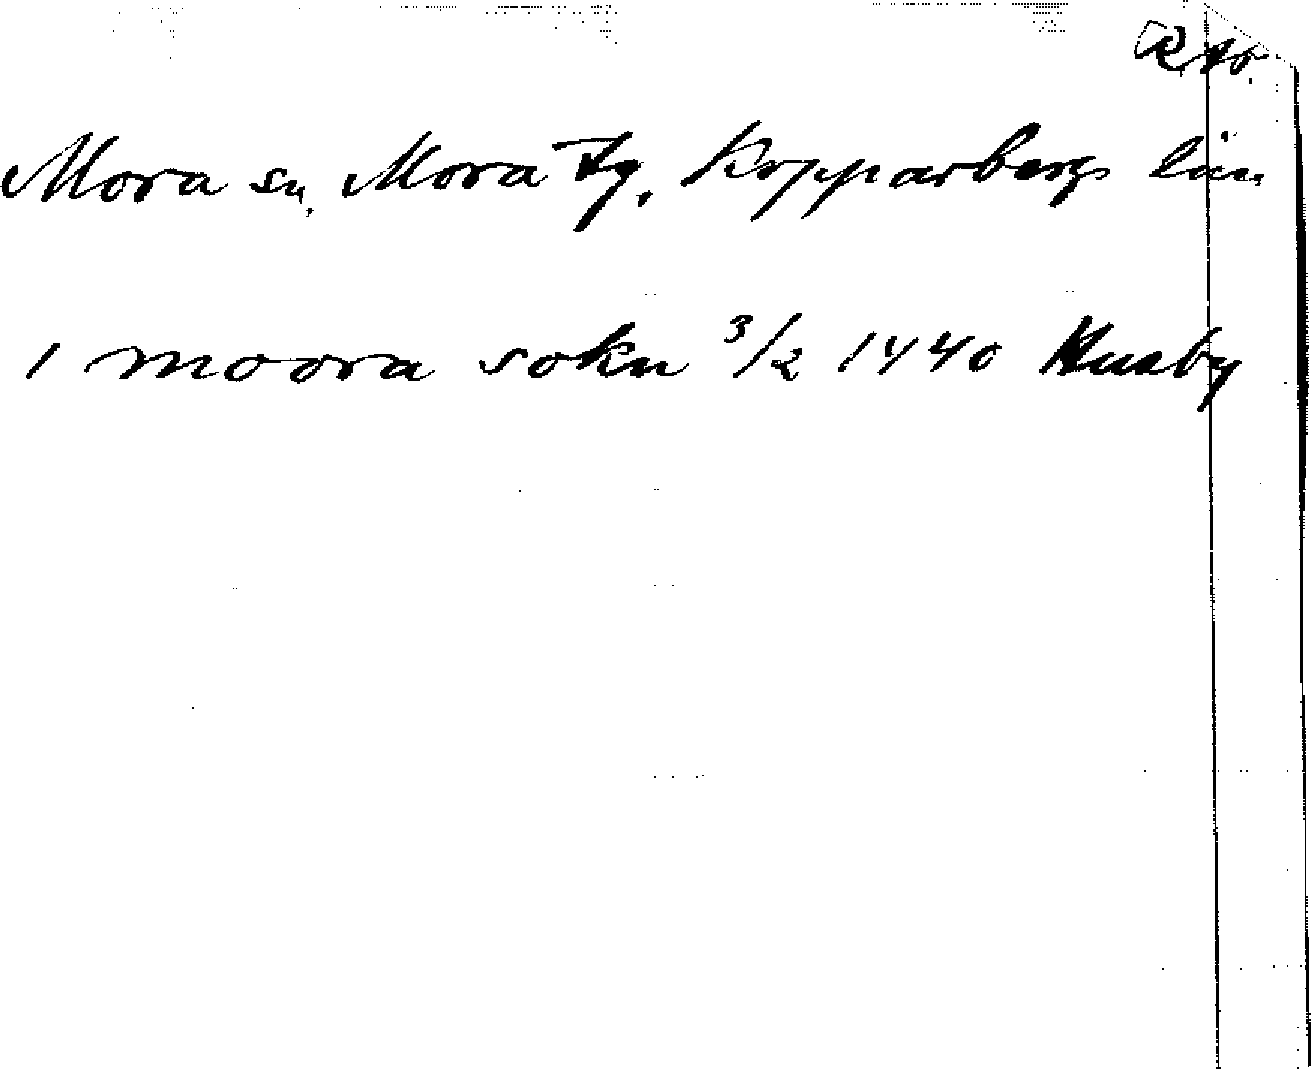 Mora sn, Mora tg, Kopparbergs län
1 moora sokn 3/2 1440 Husby